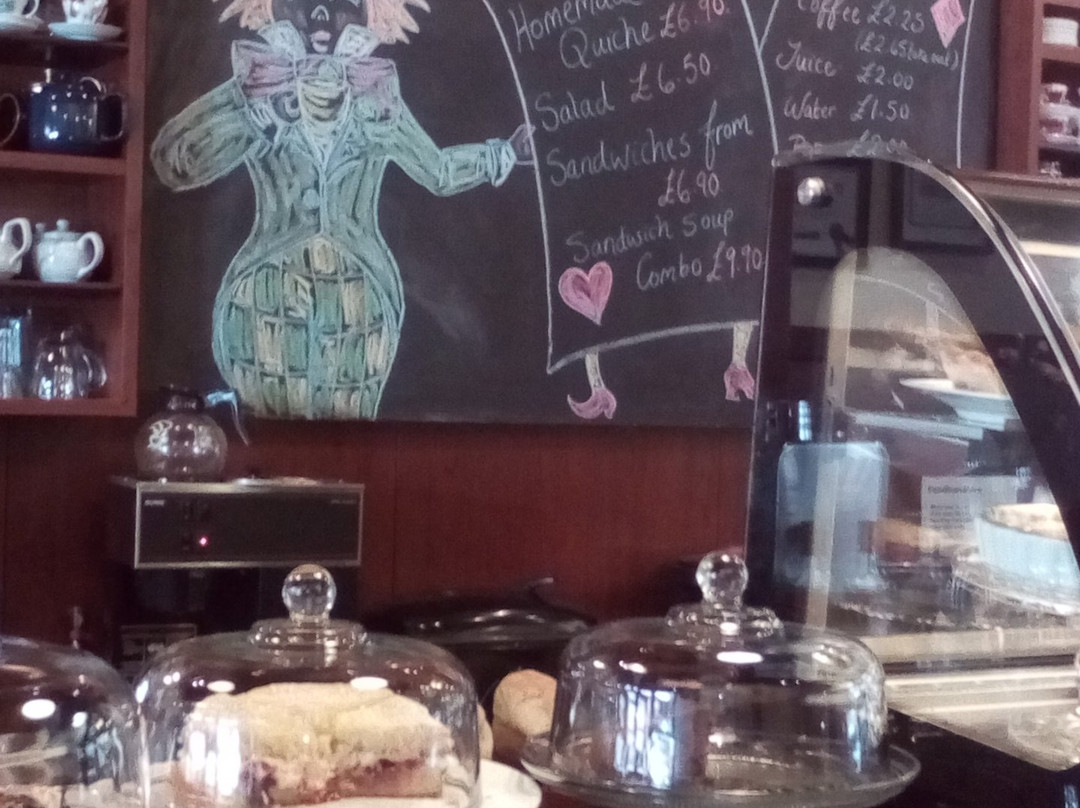 Homemade
Quiche £6.90.
Salad £6.50.
Sandwiches from
£6.90
Sandwich Soup
Combo £9.90
Coffee £2.25
Juice £2.00
Water £1.50